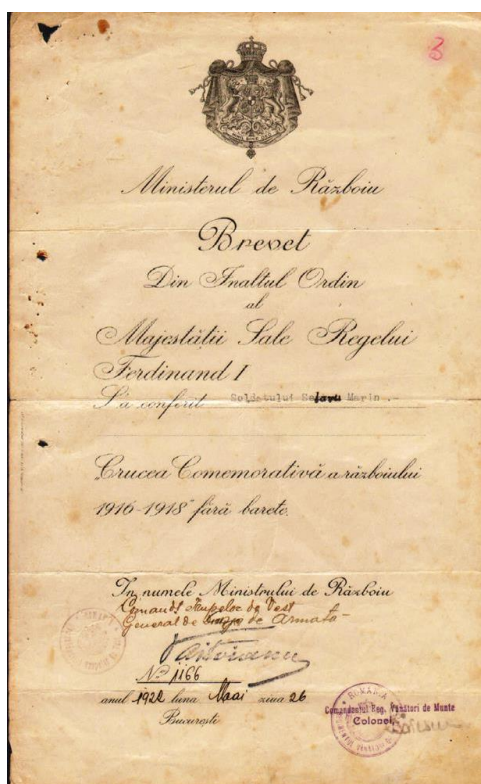 3
Ministerul de Războiu
Brevet
Din Inaltul Ordin
al
Majestății Sale Regelui
Ferdinand I
S'a conferit Soldatului Marin.-
Crucea Comemorativă a războiului
1916-1918" fără barete.
In numele Ministrului de Războiu
Comandt Trupelor de Vest
General de de Armată
No 1166
anul 1922 luna Mai ziua 26
București
ROMANIA
Comandantul Reg. Vânători de Munte
Colonel